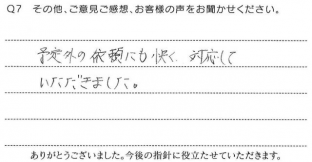 Q7 その他、ご意見ご感想、お客様の声をお聞かせください。
予定外の依頼にも快く対応して
いただきました。
ありがとうございました。今後の指針に役立たせていただきます。